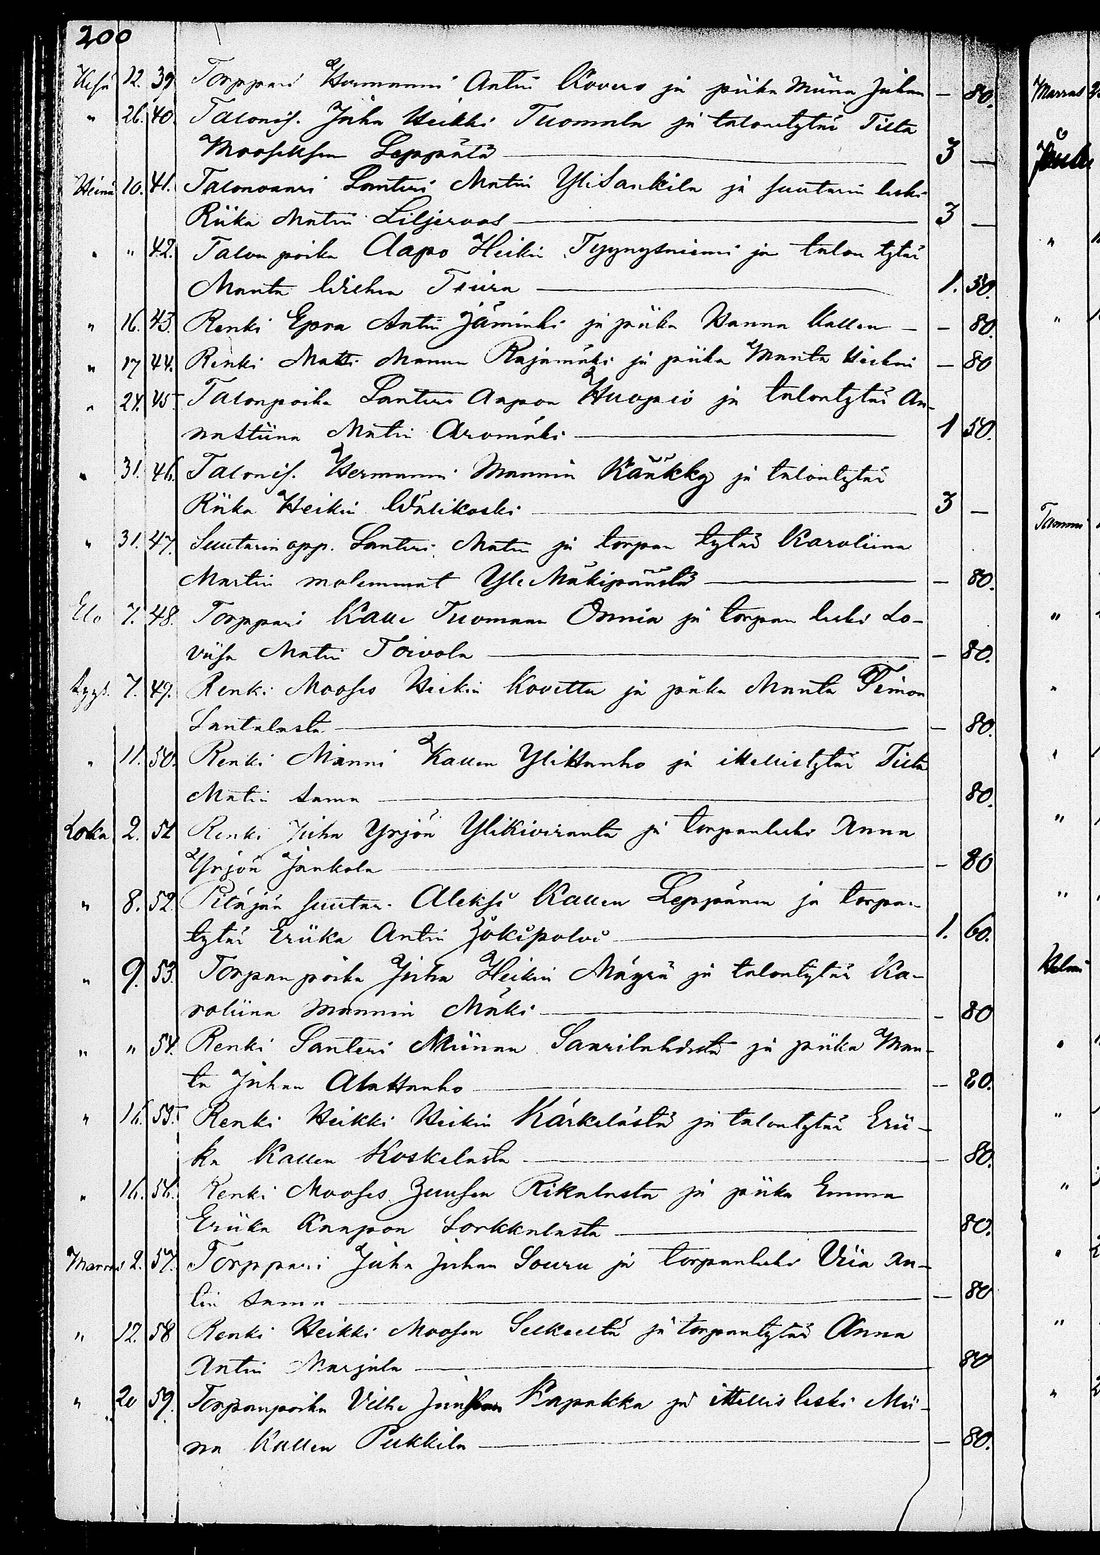 200
Kesä 12. 39. Torppari Hermanni Antin Kovero ja piika Miina Juhan — 80.
" 26. 40. Talonis. Juha Heikki Tuomala ja talontytär Tilta
Mooseksen Leppälä 3 —
Heinä 10. 41. Talonvaari Santeri Matin YliSankila ja suutarin leski
Riika Matin Liljeroos 3 —
" " 42. Talonpoika Aapo Heikin Tyynysniemi ja talontytär
Manta Wilhen Teira 1. 50.
" 16. 43. Renki Epra Antin Jäminki ja piika Hanna Kallen — 80.
" 17 44. Renki Matti Mannin Rajamäki ja piika Manta Heikin — 80
" 24. 45. Talonpoika Santeri Aapon Huopio ja talontytär An-
nastiina Matin Aromäki 1 50.
" 31. 46. Talonis. Hermanni Mannin Käükky ja talontytär
Riika Heikin Wälikoski 3 —
" 31. 47. Suutarin opp. Santeri Matin ja torpan tytär Karoliina
Martin molemmat YliMäkipäästä — 80.
Elo 7. 48. Torppari Kalle Tuomaan Onnia ja torpan leski Lo-
viisa Matin Toivola — 80.
Syys. 7. 49. Renki Mooses Heikin Kovetta ja piika Manta Simon
Santalasta — 80.
" 11. 50. Renki Manni Kallen YliHanho ja itellistytär Tilta
Matin sama 80.
Loka 2. 51 Renki Juha Yrjön Ylikiviranta ja torpanleski Anna
Yrjön Jankola — 80
" 8. 52. Pitäjän suutar. Aleksi Kallen Leppänen ja torpan
tytär Eriika Antin Jokipolvi 1. 60.
" 9. 53. Torpanpoika Juha Heikin Mäyrä ja talontytär Ka-
roliina Mannin Mäki — 80
" " 54. Renki Santeri Miinan Saarilahdesta ja piika Man-
ta Juhan AlaHanho — 80.
" 16. 55. Renki Heikki Heikin Kärkelästä ja talontytär Erii-
ka Kallen Koskelasta — 80.
" 16. 56. Renki Mooses Juusen Rikalasta ja piika Emma
Eriika Kaapon Sorkkalasta 80.
Marras 2. 57. Torppari Juha Juhan Souru ja torpanleski Viia An-
tin sama — 80
" 12. 58 Renki Heikki Moosen ja torpantytär Anna
Antin Marjala 80
" 20 59. Torpanpoika Ville Rapakka ja itellis leski Mii-
na Kallen Pukkila — 80.
Marras
Joulu
Tammi
Helmi